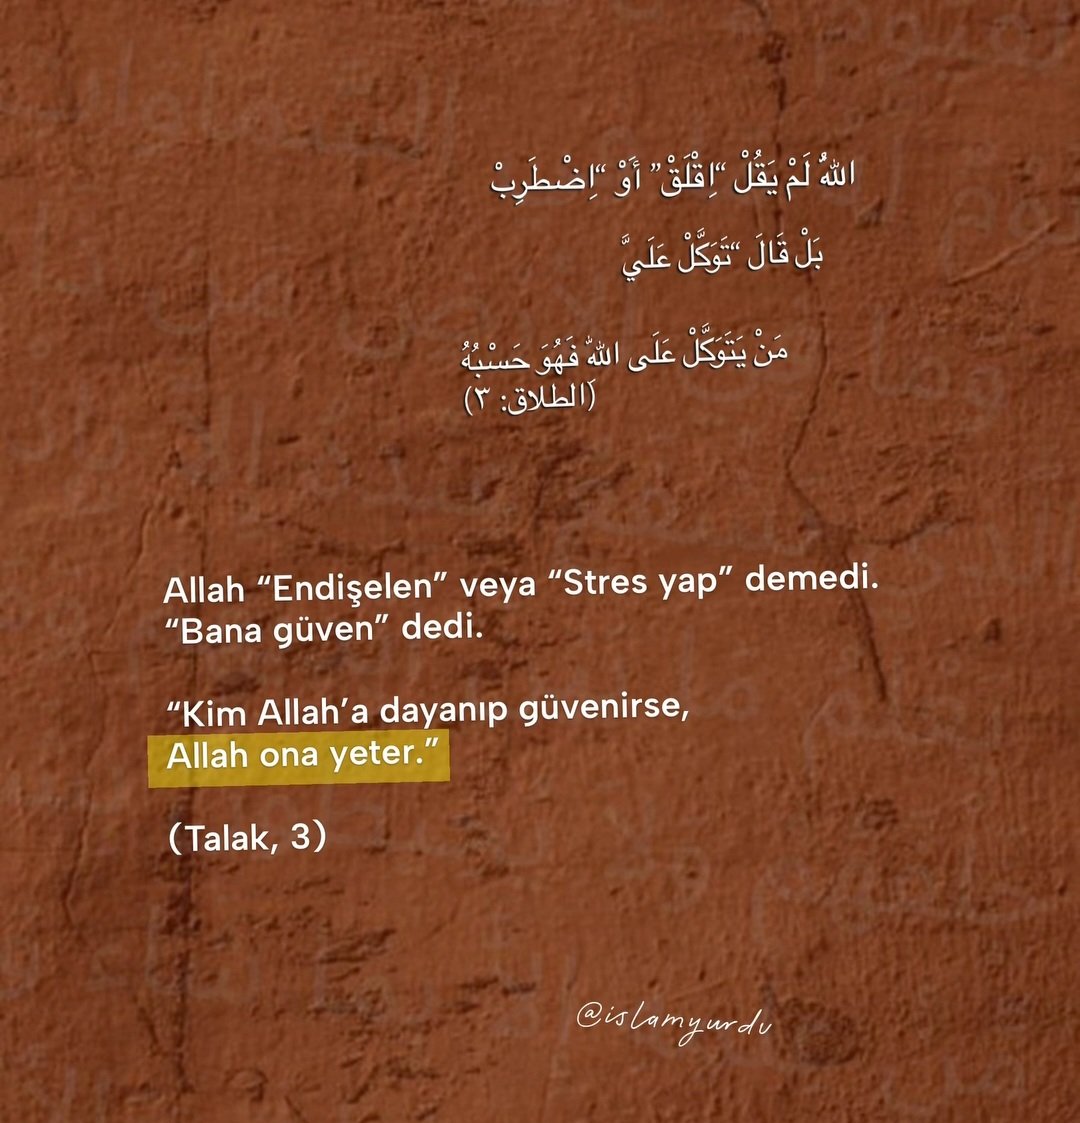 اللهُ لَمْ يَقُلْ “اِقْلَقْ” أَوْ “اِضْطَرِبْ
بَلْ قَالَ “تَوَكَّلْ عَلَيَّ
مَنْ يَتَوَكَّلْ عَلَى اللهِ فَهُوَ حَسْبُهُ
(الطلاق: ٣)
Allah “Endişelen” veya “Stres yap” demedi.
“Bana güven” dedi.
“Kim Allah’a dayanıp güvenirse,
Allah ona yeter.”
(Talak, 3)
@islamyurdu